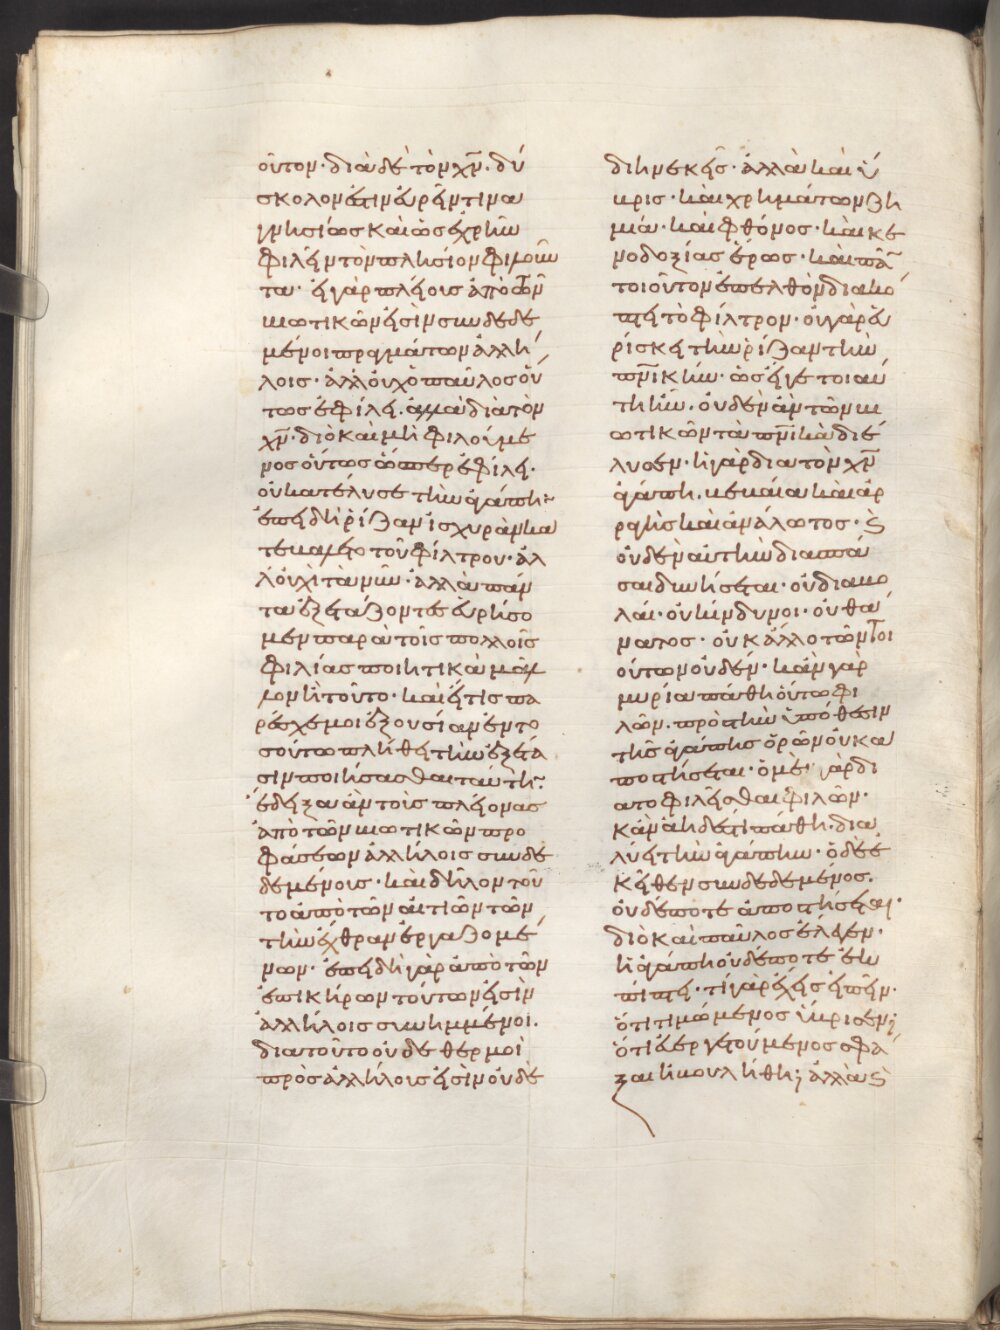 οῦτον· διὰ δὲ τὸν χν̄· δύ
σκολον ἐστιν εὑρεῖν τινα
γνησίως καὶ ὡς ἐχρῆν
φιλεῖν τὸν πλησίον φιλοῦν
τα· εἰ γὰρ πλείοις ἀπὸ τῶν
βιωτικῶν εἰσὶν συνδεδε
μένοι πραγμάτων ἀλλή
λοις· ἀλλ' οὐχ ὁ παῦλος οὕ
τως ἐφίλει· ἀλλὰ διὰ τὸν
χν̄· διὸ καὶ μὴ φιλούμε
νος οὕτως ὥσπερ ἐφίλει·
οὐ κατέλυσε τὴν ἀγάπην·
ἐπειδὴ ῥίζαν ἰσχυρὰν κα
τεβάλετο τοῦ φίλτρου· ἀλ
λ' οὐχὶ τὰ νῦν· ἀλλὰ πάν
τα ἐξετάζοντες εὑρήσο
μεν παρὰ τοῖς πολλοῖς
φιλίας ποιητικὰ μᾶλ
λον ἢ τοῦτο· καὶ εἴ τις πα
ρέσχε μοι ἐξουσίαν ἐν το
σούτω πλήθει τὴν ἐξέτα
σιν ποιήσασθαι ταύτην·
ἔδειξα ἂν τοὺς πλείονας
ἀπὸ τῶν βιωτικῶν προ
φάσεων ἀλλήλοις συνδε
δεμένους· καὶ δῆλον τοῦ
το ἀπὸ τῶν αἰτιῶν τῶν
τὴν ἔχθραν ἐργαζομέ
νων· ἐπειδὴ γὰρ ἀπὸ τῶν
ἐπικήρων τούτων εἰσὶν
ἀλλήλοις συνημμένοι·
διὰ τοῦτο οὐδὲ θερμοὶ
πρὸς ἀλλήλους εἰσὶν οὐδὲ
διηνεκεῖς· ἀλλὰ καὶ ὕ
βρις· καὶ χρημάτων ζη
μία· καὶ φθόνος· καὶ κε
νοδοξίας ἔρως· καὶ πᾶν
τοιοῦτον ἐπελθὸν διακό
πτει τὸ φίλτρον· οὐ γὰρ εὑ
ρίσκει τὴν ῥίζαν τὴν
πνικήν· ὡς εἴγε τοιαύ
τη ἦν· οὐδὲν ἂν τῶν βι
ωτικῶν τὰ πνικὰ διέ
λυσεν· ἡ γὰρ διὰ τὸν χν̄
ἀγάπη· βεβαία καὶ ἀρ
ραγὴς καὶ ἀνάλωτος· καὶ
οὐδὲν αὐτὴν διασπά
σαι δυνήσεται· οὐ διαβο
λαί· οὐ κίνδυνοι· οὐ θά
νατος· οὐκ ἄλλο τῶν τοι
ούτων οὐδέν· κἂν γὰρ
μυρία πάθη ὁ οὕτω φι
λῶν· πρὸς τὴν ὑπόθεσιν
τῆς ἀγάπης ὁρῶν οὐκ ἀ
ποστήσεται· ὁ μὲν γὰρ δι
ὰ τὸ φιλεῖσθαι φιλῶν·
κἂν ἀηδές τι πάθη· δια
λύει τὴν ἀγάπην· ὁ δὲ ἐ
κεῖθεν συνδεδεμένος·
οὐδέποτε ἀποστήσεται·
διὸ καὶ παῦλος ἔλεγεν·
ἡ ἀγάπη οὐδέποτε ἐκ
πίπτει· τί γὰρ ἔχεις εἰπεῖν·
ὅτι τιμώμενος ὕβρισεν;
ὅτι εὐεργετούμενος σφά
ξαι ἠβουλήθη; ἀλλὰ καὶ